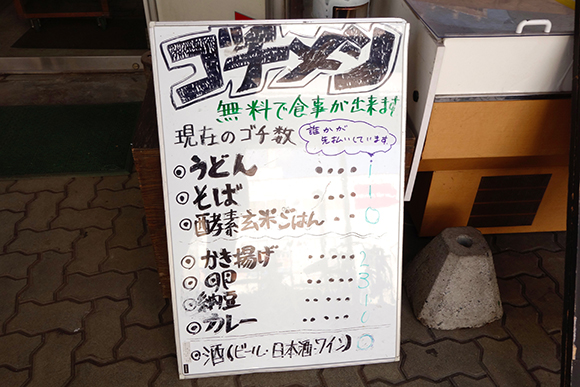 ゴチメン
無料で食事が出来ます
現在のゴチ数
誰かが
先払いしています
◎うどん ‥‥ 1
◎そば ‥‥ 1
◎酵素玄米ごはん ‥ 0
◎かき揚げ ‥‥‥ 2
◎卵 ‥‥‥ 3
◎納豆 ‥‥‥
◎カレー ‥‥‥
◎酒(ビール・日本酒・ワイン) 0